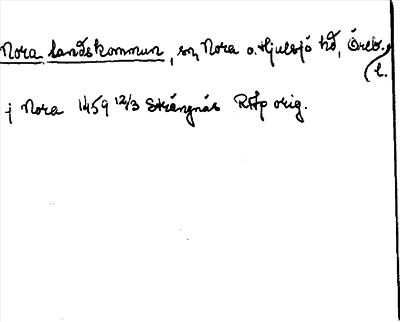 Nora landskommun, sn, Nora o. Hjulsjö hd, Öreb.
l.
i Nora 1459 12/3 Strängnäs RAp orig.